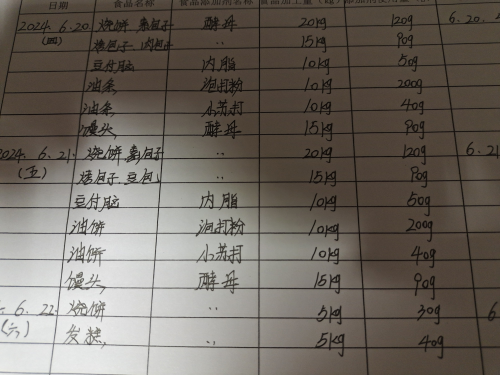 日期 食品名称 食品添加剂名称 食品加工量(kg) 添加剂使用量
2024.6.20 烧饼 酵母 20kg 120g 6.20.
(四) 糖包子 肉包子 〃 15kg 90g
豆付脑 内脂 10kg 50g
油条 泡打粉 10kg 200g
油条 小苏打 10kg 40g
馒头 酵母 15kg 90g
2024.6.21. 烧饼 〃 20kg 120g 6.21
(五) 糖包子 豆包 〃 15kg 90g
豆付脑 内脂 10kg 50g
油饼 泡打粉 10kg 200g
油饼 小苏打 10kg 40g
馒头 酵母 15kg 90g
6.22. 烧饼 〃 5kg 30g 6
(六) 发糕 〃 5kg 40g